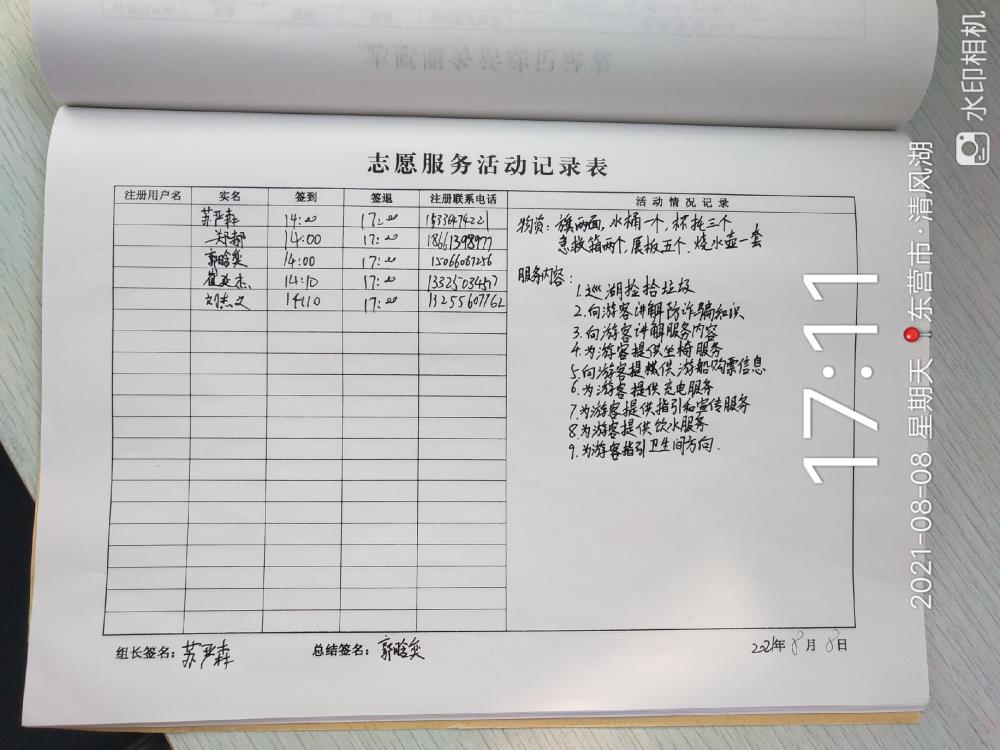 志愿服务活动记录表
注册用户名 实名 签到 签退 注册联系电话 活动情况记录
苏严森 14:00 17:00 1533474221
郑郝 14:00 17:00 18661398977
郭晗奕 14:00 17:00 15066087256
崔延杰 14:10 17:00 13325034517
刘杰文 14:10 17:00 13255607762
物资: 旗两面, 水桶一个, 杯托三个
急救箱两个, 展板五个, 烧水壶一套
服务内容:
1.巡湖捡拾垃圾
2.向游客讲解防诈骗知识
3.向游客讲解服务内容
4.为游客提供坐椅服务
5.向游客提供游船购票信息
6.为游客提供充电服务
7.为游客提供指引和宣传服务
8.为游客提供饮水服务
9.为游客指引卫生间方向.
组长签名: 苏严森 总结签名: 郭晗奕 2021年8月8日
17:11
2021-08-08 星期天 东营市·清风湖
水印相机